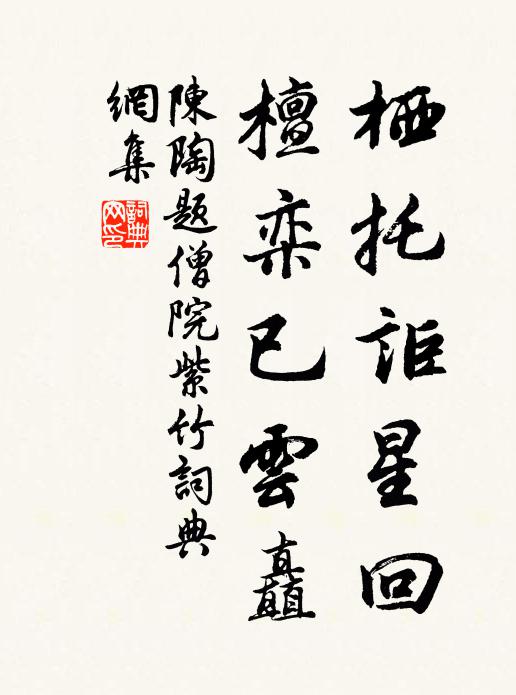 栖托詎星回
檀栾已雲矗
陳陶題僧院紫竹詞典
網集
詞典
网印